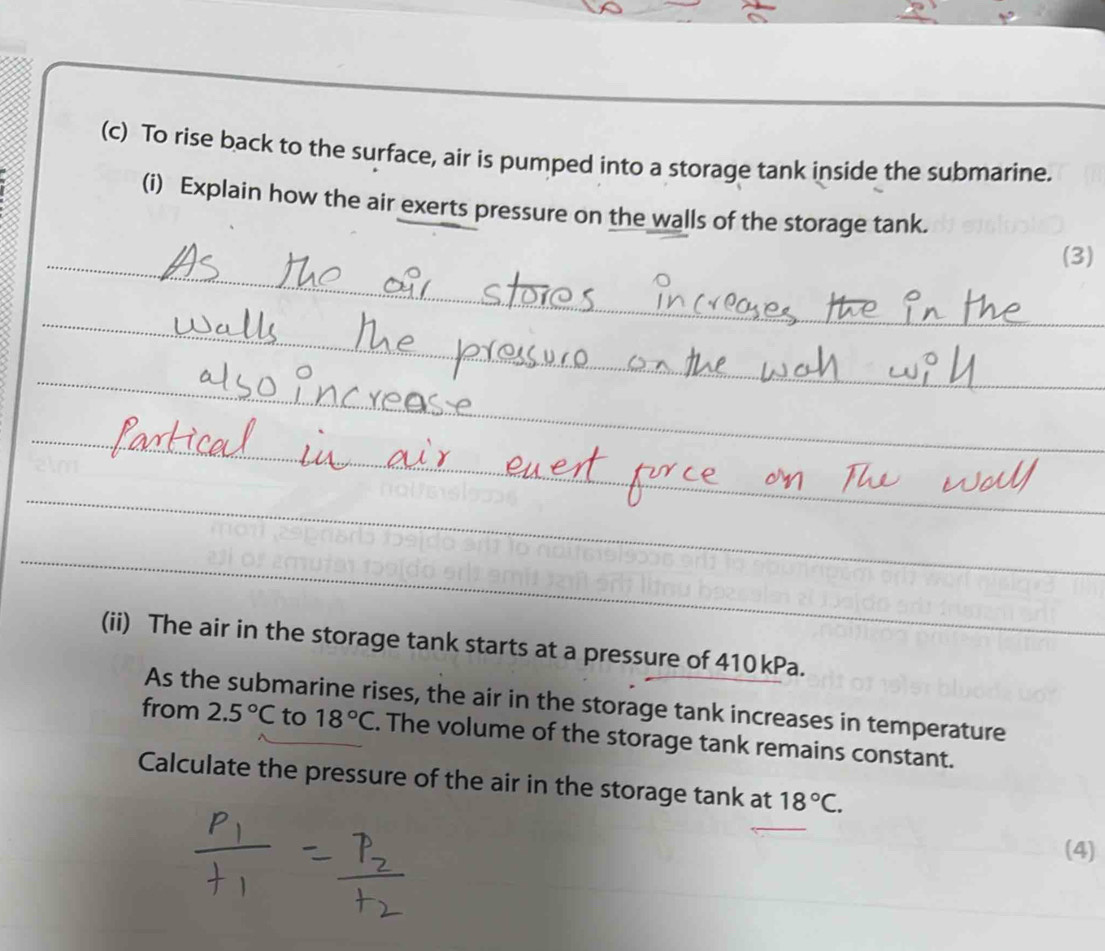 (c) To rise back to the surface, air is pumped into a storage tank inside the submarine.
(i) Explain how the air exerts pressure on the walls of the storage tank.
(3)
As the air stores increases the in the
walls the pressure on the wall will
also increase
Partical in air exert force on The wall
(ii) The air in the storage tank starts at a pressure of 410 kPa.
As the submarine rises, the air in the storage tank increases in temperature
from 2.5 °C to 18 °C. The volume of the storage tank remains constant.
Calculate the pressure of the air in the storage tank at 18 °C.
(4)
P1/t1 = P2/t2